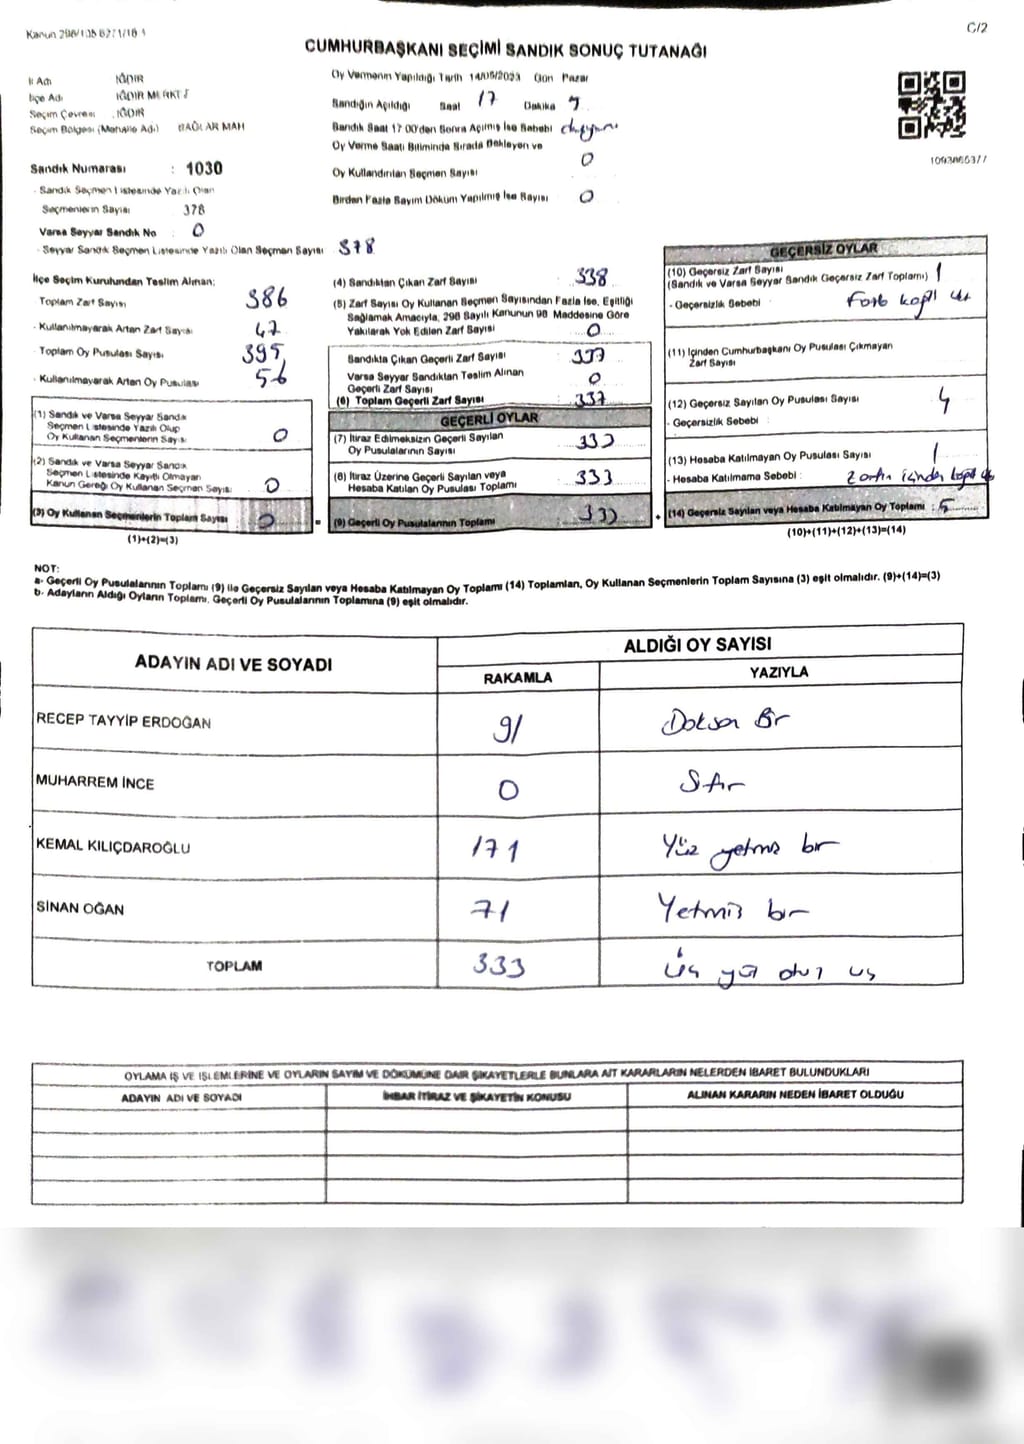 C/2
CUMHURBAŞKANI SEÇİMİ SANDIK SONUÇ TUTANAĞI
İl Adı IĞDIR
İlçe Adı IĞDIR MERKEZ
Seçim Çevresi IĞDIR
Seçim Bölgesi (Mahalle Adı) BAĞLAR MAH
Oy Vermenin Yapıldığı Tarih 14/05/2023 Gün Pazar
Sandığın Açıldığı Saat 17 Dakika
Sandık Saat 17 00'den Sonra Açılmış İse Sebebi
Oy Verme Saati Bitiminde Sırada Bekleyen ve
Oy Kullandırılan Seçmen Sayısı 0
Birden Fazla Sayım Döküm Yapılmış İse Sayısı 0
Sandık Numarası : 1030
- Sandık Seçmen Listesinde Yazılı Olan
Seçmenlerin Sayısı 378
Varsa Seyyar Sandık No 0
- Seyyar Sandık Seçmen Listesinde Yazılı Olan Seçmen Sayısı 378
İlçe Seçim Kurulundan Teslim Alınan:
Toplam Zarf Sayısı 386
- Kullanılmayarak Artan Zarf Sayısı 47
- Toplam Oy Pusulası Sayısı 395
- Kullanılmayarak Artan Oy Pusulası 56
(1) Sandık ve Varsa Seyyar Sandık
Seçmen Listesinde Yazılı Olup
Oy Kullanan Seçmenlerin Sayısı 0
(2) Sandık ve Varsa Seyyar Sandık
Seçmen Listesinde Kayıtlı Olmayan
Kanun Gereği Oy Kullanan Seçmen Sayısı 0
(3) Oy Kullanan Seçmenlerin Toplam Sayısı 0
(1)+(2)=(3)
(4) Sandıktan Çıkan Zarf Sayısı 338
(5) Zarf Sayısı Oy Kullanan Seçmen Sayısından Fazla İse, Eşitliği
Sağlamak Amacıyla, 298 Sayılı Kanunun 98 Maddesine Göre
Yakılarak Yok Edilen Zarf Sayısı 0
Sandıkta Çıkan Geçerli Zarf Sayısı 337
Varsa Seyyar Sandıktan Teslim Alınan
Geçerli Zarf Sayısı 0
(6) Toplam Geçerli Zarf Sayısı 337
GEÇERLİ OYLAR
(7) İtiraz Edilmeksizin Geçerli Sayılan
Oy Pusulalarının Sayısı 333
(8) İtiraz Üzerine Geçerli Sayılan veya
Hesaba Katılan Oy Pusulası Toplamı 333
= (9) Geçerli Oy Pusulalarının Toplamı 333
GEÇERSİZ OYLAR
(10) Geçersiz Zarf Sayısı
(Sandık ve Varsa Seyyar Sandık Geçersiz Zarf Toplamı) 1
- Geçersizlik Sebebi
(11) İçinden Cumhurbaşkanı Oy Pusulası Çıkmayan
Zarf Sayısı
(12) Geçersiz Sayılan Oy Pusulası Sayısı 4
- Geçersizlik Sebebi
(13) Hesaba Katılmayan Oy Pusulası Sayısı 1
- Hesaba Katılmama Sebebi :
+ (14) Geçersiz Sayılan veya Hesaba Katılmayan Oy Toplamı : 5
(10)+(11)+(12)+(13)=(14)
NOT:
a- Geçerli Oy Pusulalarının Toplamı (9) ile Geçersiz Sayılan veya Hesaba Katılmayan Oy Toplamı (14) Toplamları, Oy Kullanan Seçmenlerin Toplam Sayısına (3) eşit olmalıdır. (9)+(14)=(3)
b- Adayların Aldığı Oyların Toplamı, Geçerli Oy Pusulalarının Toplamına (9) eşit olmalıdır.
ADAYIN ADI VE SOYADI ALDIĞI OY SAYISI
RAKAMLA YAZIYLA
RECEP TAYYİP ERDOĞAN 91 Doksan Bir
MUHARREM İNCE 0 Sıfır
KEMAL KILIÇDAROĞLU 171 Yüz yetmiş bir
SİNAN OĞAN 71 Yetmiş bir
TOPLAM 333 Üç yüz otuz üç
OYLAMA İŞ VE İŞLEMLERİNE VE OYLARIN SAYIM VE DÖKÜMÜNE DAİR ŞİKAYETLERLE BUNLARA AİT KARARLARIN NELERDEN İBARET BULUNDUKLARI
ADAYIN ADI VE SOYADI İHBAR İTİRAZ VE ŞİKAYETİN KONUSU ALINAN KARARIN NEDEN İBARET OLDUĞU